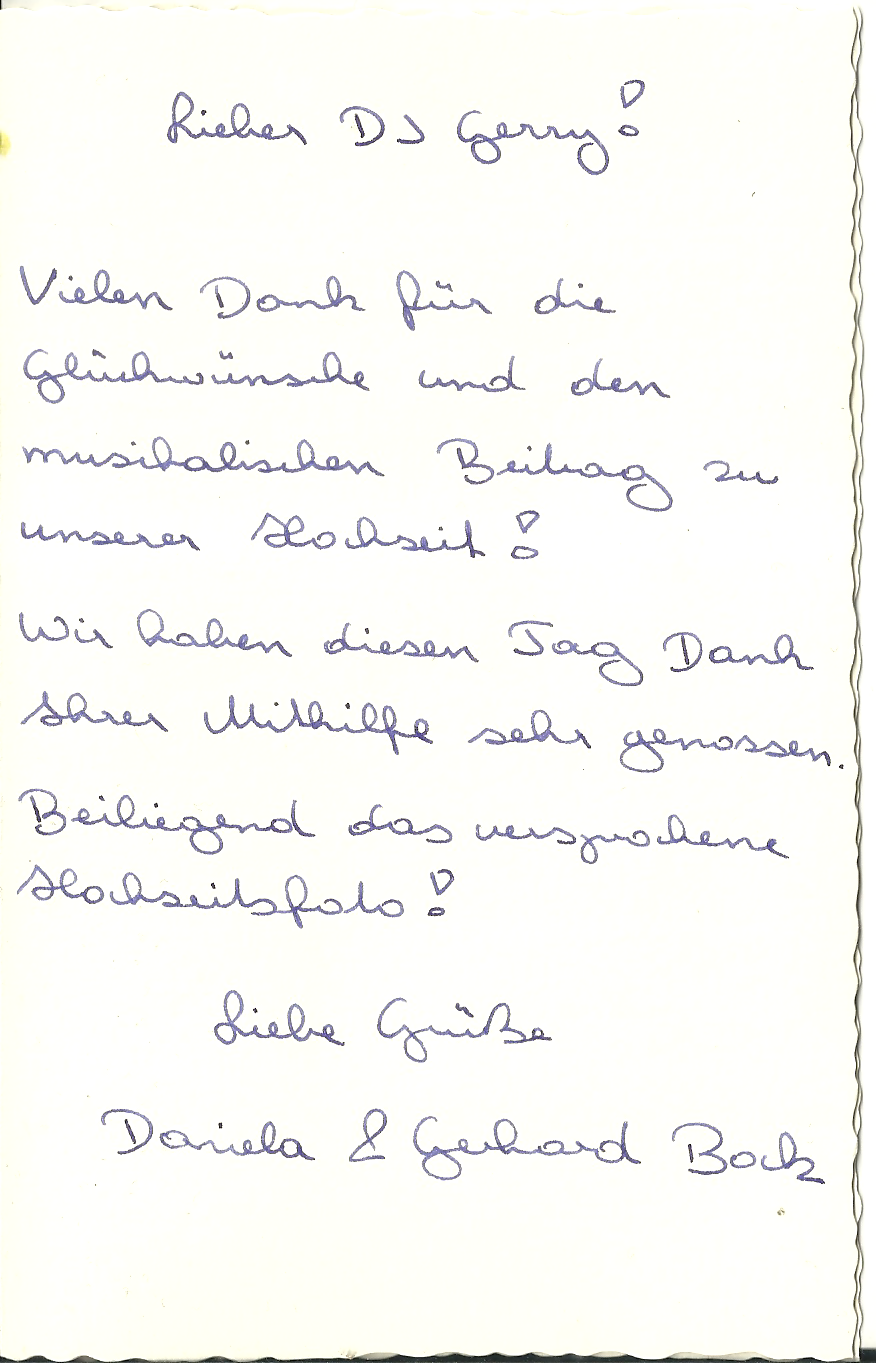 Lieber DJ Gerry!
Vielen Dank für die
Glückwünsche und den
musikalischen Beitrag zu
unserer Hochzeit!
Wir haben diesen Tag Dank
Ihrer Mithilfe sehr genossen.
Beiliegend das versprochene
Hochzeitsfoto!
Liebe Grüße
Daniela & Gerhard Bock